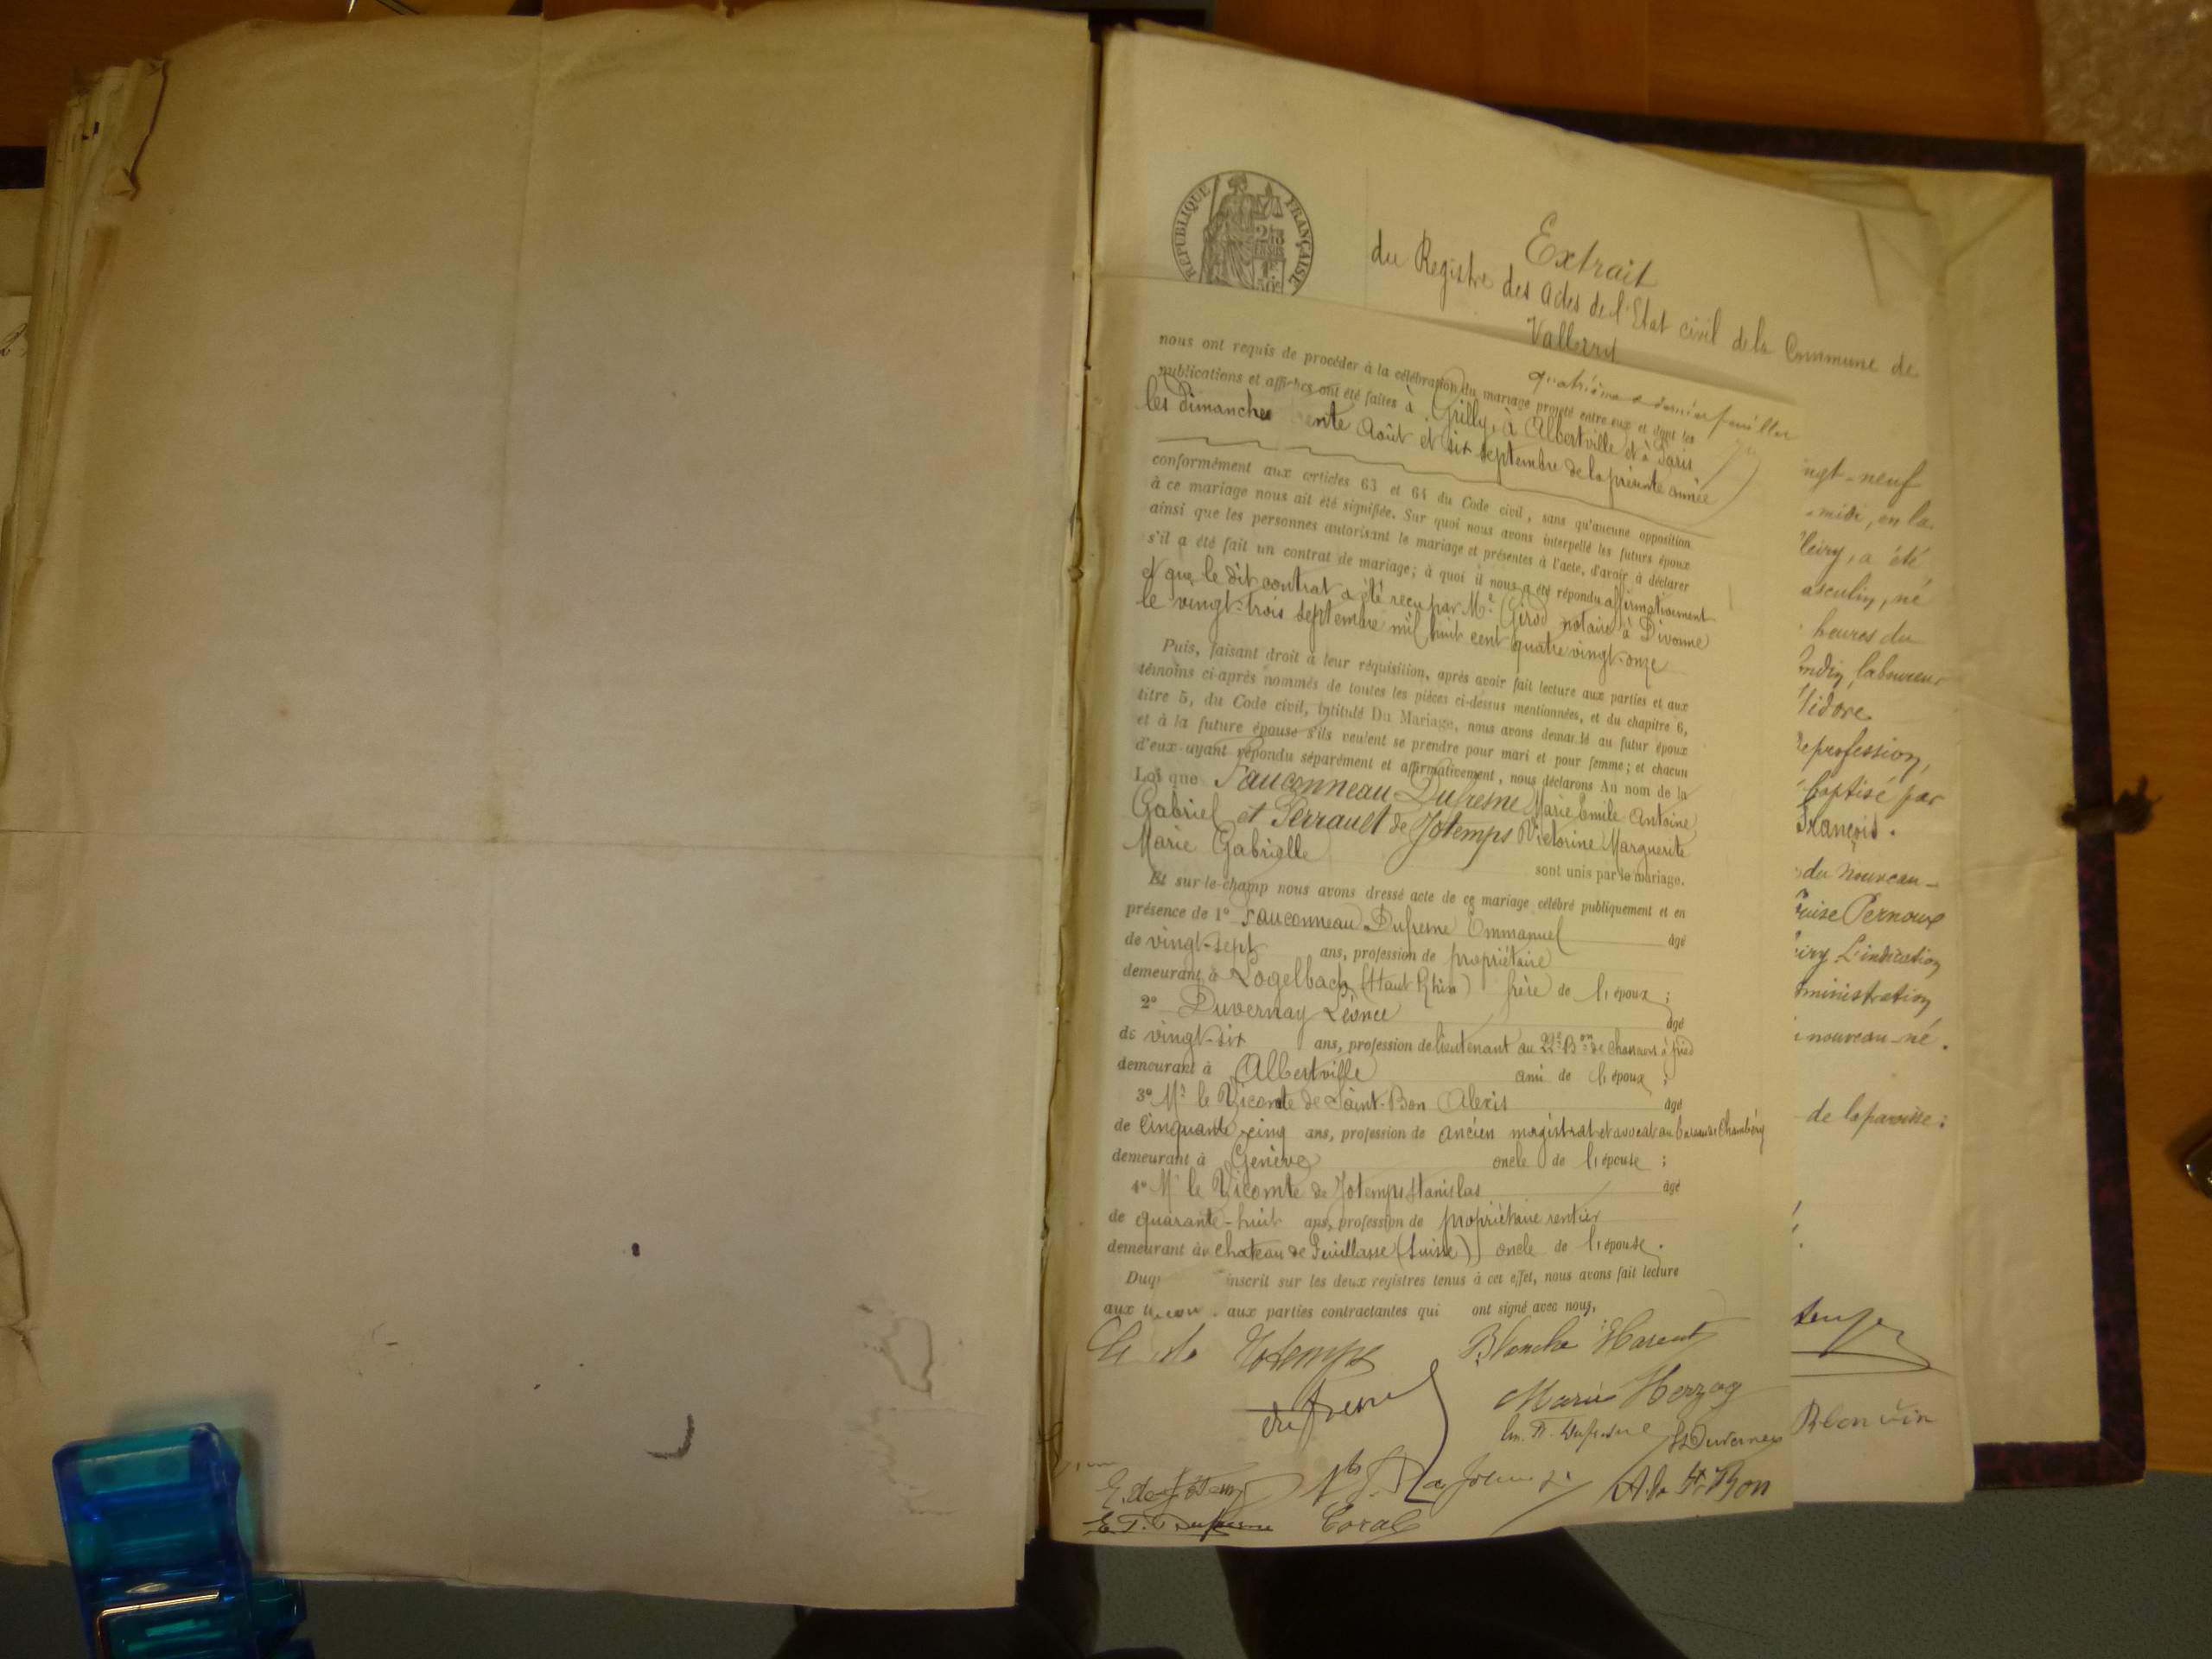 RÉPUBLIQUE FRANÇAISE
Extrait
du Registre des actes de l'Etat civil de la Commune de
quatrième et dernier feuillet
nous ont requis de procéder à la célébration du mariage projeté entre eux et dont les
publications et affiches ont été faites à Grilly, à Albertville et à Paris
les dimanches ente Août et six septembre de la présente année
conformément aux articles 63 et 64 du Code civil, sans qu'aucune opposition
à ce mariage nous ait été signifiée. Sur quoi nous avons interpellé les futurs époux
ainsi que les personnes autorisant le mariage et présentes à l'acte, d'avoir à déclarer
s'il a été fait un contrat de mariage; à quoi il nous a été répondu affirmativement
et que le dit contrat a été reçu par Me. Girod notaire à Divonne
le vingt-trois septembre mil huit cent quatre vingt-onze
Puis, faisant droit à leur réquisition, après avoir fait lecture aux parties et aux
témoins ci-après nommés de toutes les pièces ci-dessus mentionnées, et du chapitre 6,
titre 5, du Code civil, intitulé Du Mariage, nous avons demandé au futur époux
et à la future épouse s'ils veulent se prendre pour mari et pour femme; et chacun
d'eux ayant répondu séparément et affirmativement, nous déclarons Au nom de la
Loi que Fauconneau Dufresne Marie Emile Antoine
Gabriel et Perrault de Jotemps Victorine Marguerite
Marie Gabrielle
sont unis par le mariage.
Et sur-le-champ nous avons dressé acte de ce mariage célébré publiquement et en
présence de 1° Fauconneau Dufresne Emmanuel âgé
de vingt-sept ans, profession de propriétaire
demeurant à Logelbach (Haut Rhin) frère de l'époux ;
2° Duvernay Léonce âgé
de vingt-six ans, profession de lieutenant au 22e Bon de chasseurs à pied
demeurant à Albertville ami de l'époux ;
3° Mr le Vicomte de Saint-Bon Alexis âgé
de Cinquante cinq ans, profession de ancien magistrat et avocat au barreau de Chambéry
demeurant à Genève oncle de l'épouse ;
4° Mr le Vicomte de Jotemps Stanislas âgé
de quarante-huit ans, profession de propriétaire rentier
demeurant au chateau de Feuillasse (Suisse) oncle de l'épouse.
Duq inscrit sur les deux registres tenus à cet effet, nous avons fait lecture
aux aux parties contractantes qui ont signé avec nous,
de Jotemps Blanche Harent
dufresne Marie Herzog
Em. F. Dufresne Duvernay
E. de Jotemps A. de St Bon
E. F. Dufresne
ngt-neuf
midi, en la
a été
asculin, né
heures du
laboureur
profession,
baptisé par
François.
du nouveau-
Pernoux
L'indication
ministration
nouveau-né.
de la paroisse :